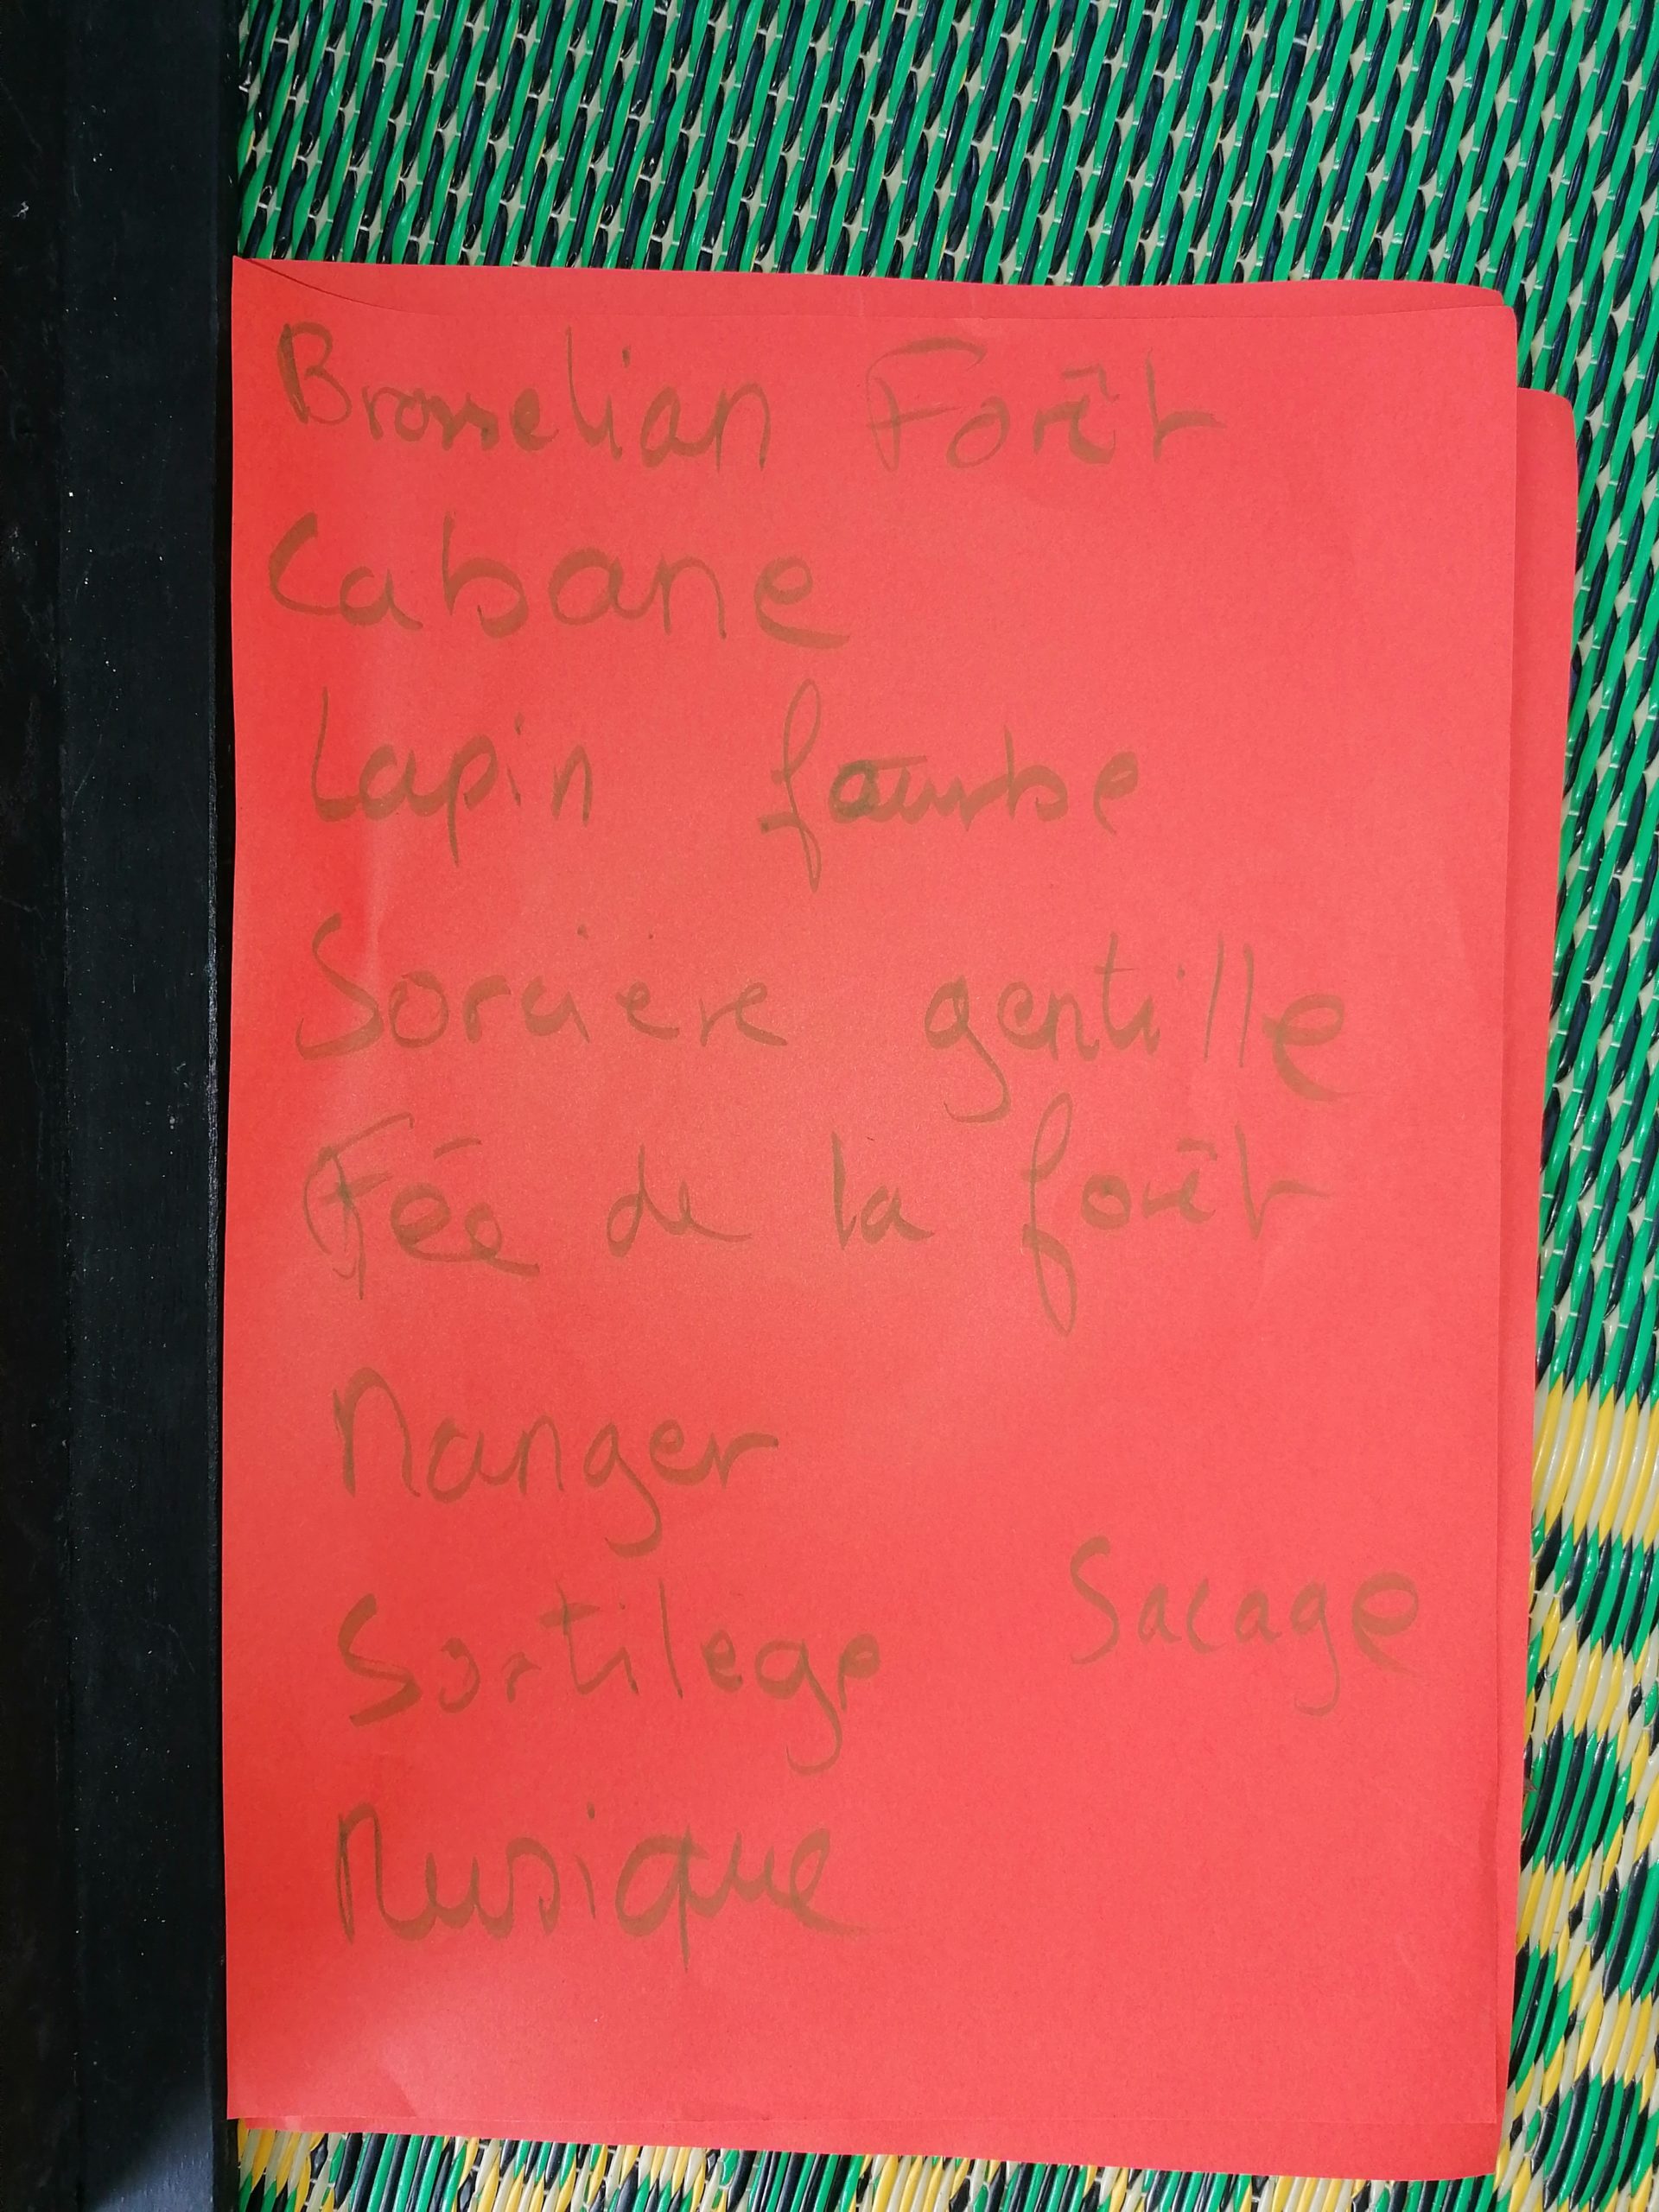 Brosselian Forêt
Cabane
Lapin
Sorciere gentille
Fée de la forêt
Manger
Sacage
Sortilege
Musique